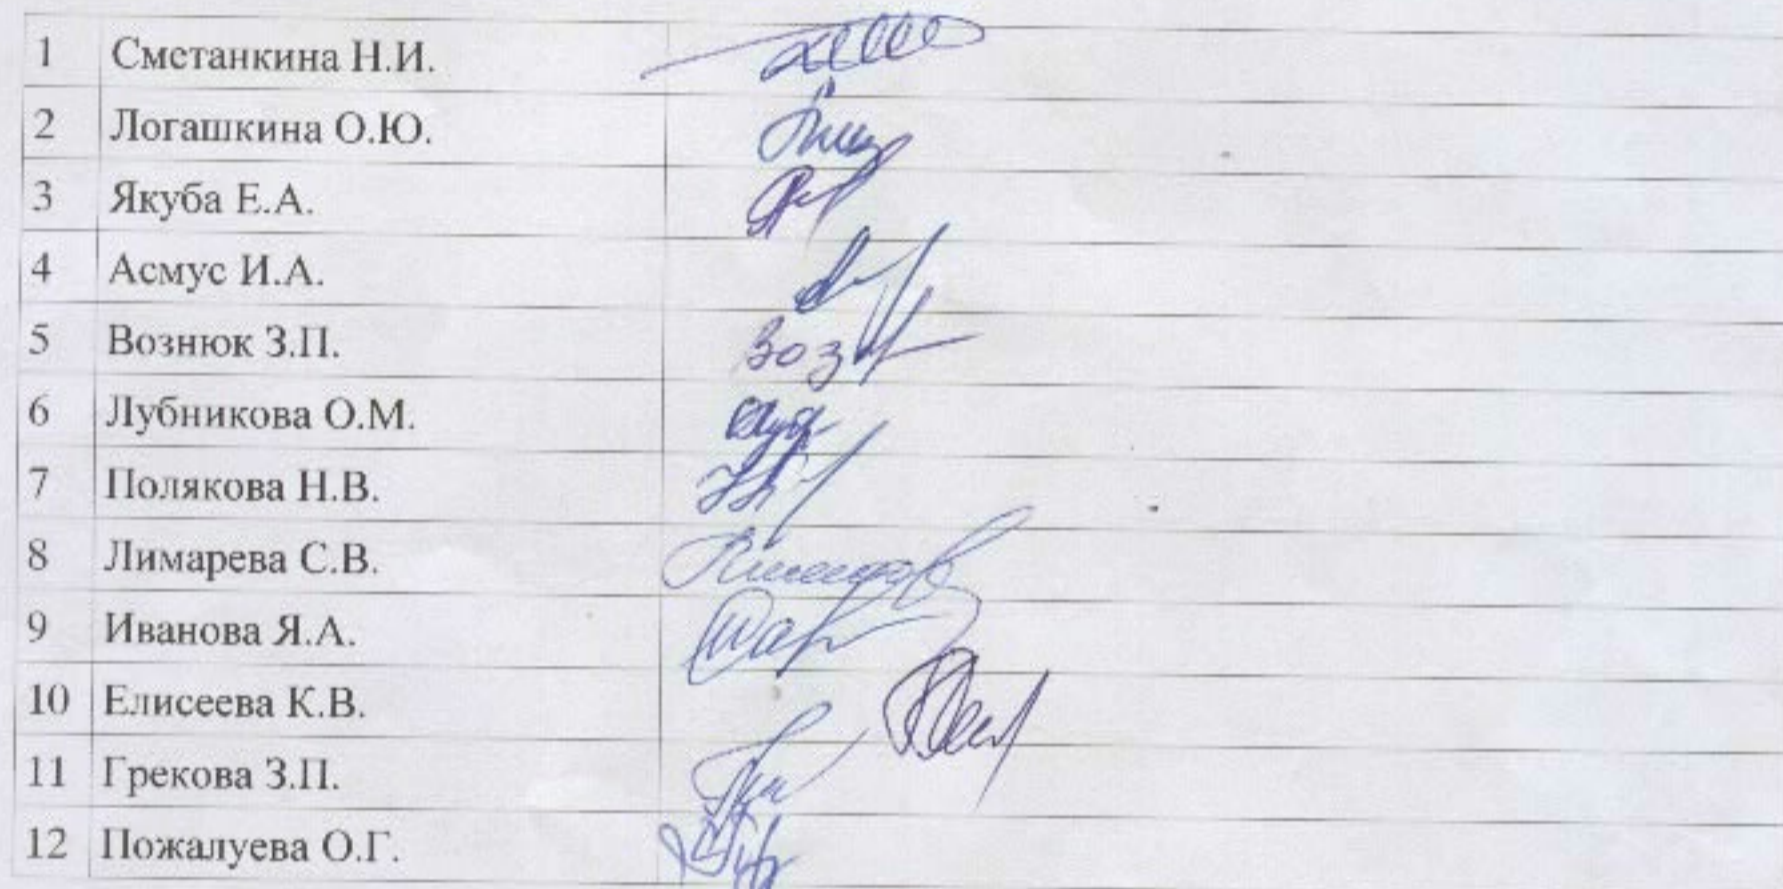 1 Сметанкина Н.И.
2 Логашкина О.Ю.
3 Якуба Е.А.
4 Асмус И.А.
5 Вознюк З.П.
6 Лубникова О.М.
7 Полякова Н.В.
8 Лимарева С.В.
9 Иванова Я.А.
10 Елисеева К.В.
11 Грекова З.П.
12 Пожалуева О.Г.